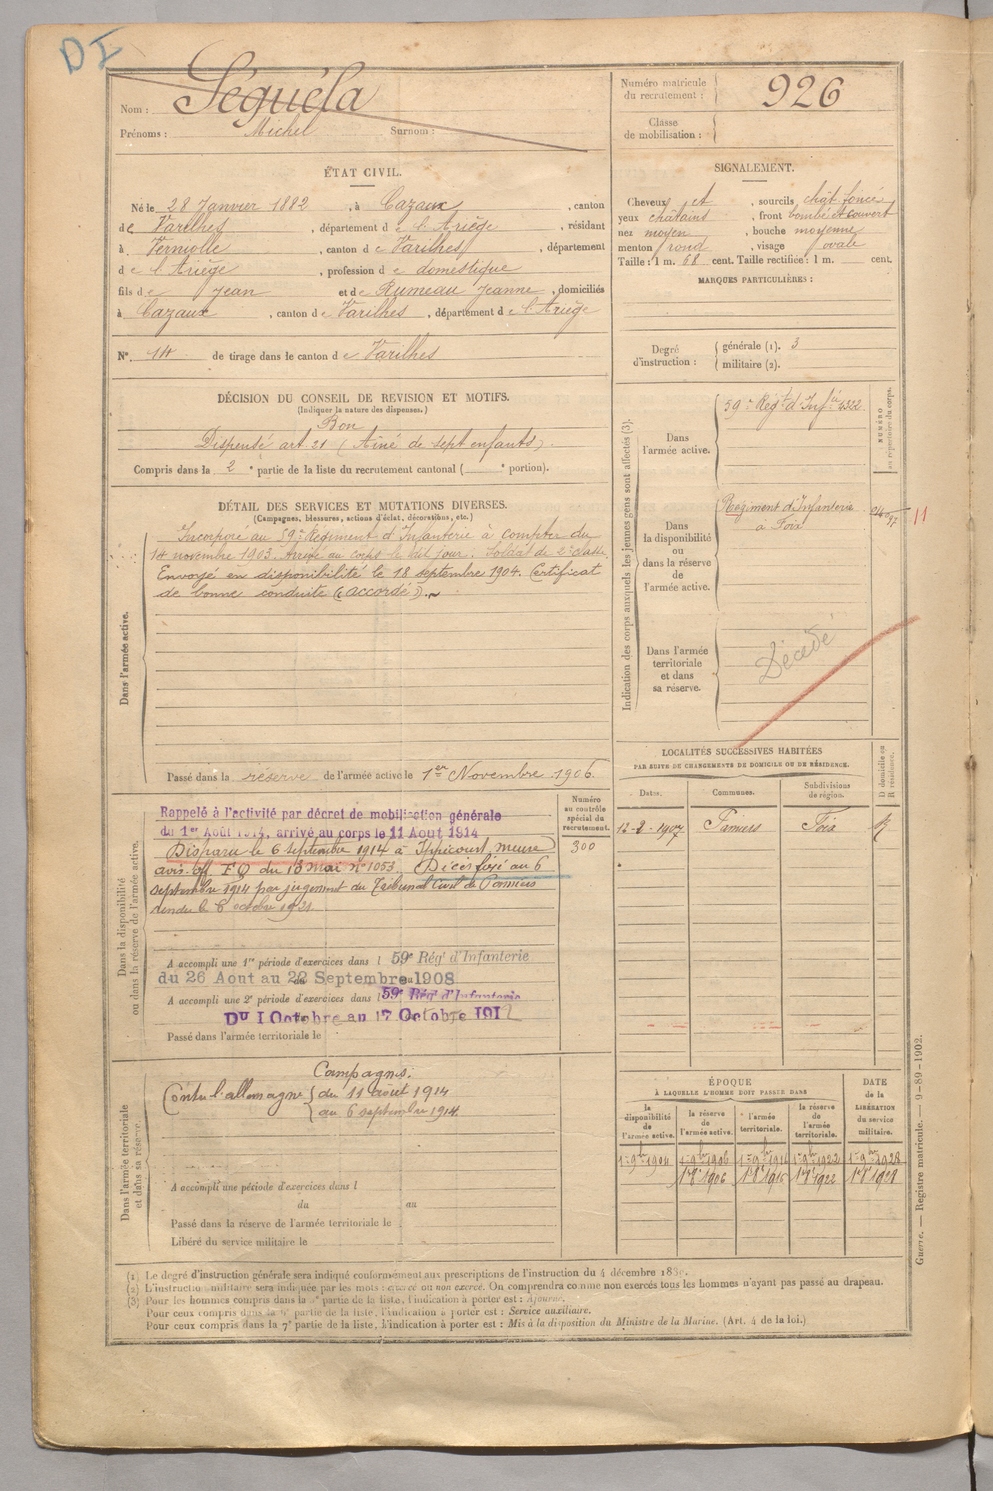 DI
Nom : Séguéla
Prénoms : Michel Surnom :
Numéro matricule du recrutement : 926
Classe de mobilisation :
ÉTAT CIVIL.
Né le 28 Janvier 1882, à Cazaux, canton
de Varilhes, département de l'Ariège, résidant
à Verniolle, canton de Varilhes, département
de l'Ariège, profession de domestique
fils de Jean et de Rumeau Jeanne, domiciliés
à Cazaux, canton de Varilhes, département de l'Ariège
N° 14 de tirage dans le canton de Varilhes
SIGNALEMENT.
Cheveux et, sourcils chât foncés
yeux chatains, front bombé et couvert
nez moyen, bouche moyenne
menton rond, visage ovale
Taille : 1 m. 68 cent. Taille rectifiée : 1 m. cent.
MARQUES PARTICULIÈRES :
Degré d'instruction : générale (1). 3
militaire (2).
DÉCISION DU CONSEIL DE REVISION ET MOTIFS.
(Indiquer la nature des dispenses.)
Bon
Dispensé art 21 (Aîné de sept enfants)
Compris dans la 2e partie de la liste du recrutement cantonal ( e portion).
DÉTAIL DES SERVICES ET MUTATIONS DIVERSES.
(Campagnes, blessures, actions d'éclat, décorations, etc.)
Dans l'armée active.
Incorporé au 59e Régiment d'Infanterie à compter du
14 novembre 1903. Arrivé au corps le dit jour. Soldat de 2e classe
Envoyé en disponibilité le 18 septembre 1904. Certificat
de bonne conduite "accordé".
Passé dans la réserve de l'armée active le 1er Novembre 1906.
Indication des corps auxquels les jeunes gens sont affectés (3).
NUMÉRO au répertoire du corps.
Dans l'armée active.
59e Régt d'Infie 4322
Dans la disponibilité ou dans la réserve de l'armée active.
Régiment d'Infanterie
à Foix
11
Dans l'armée territoriale et dans sa réserve.
Décédé
LOCALITÉS SUCCESSIVES HABITÉES
PAR SUITE DE CHANGEMENTS DE DOMICILE OU DE RÉSIDENCE.
Dates. Communes. Subdivisions de région. D domicile ou R résidence.
12-2-1907 Pamiers Foix R
Dans la disponibilité ou dans la réserve de l'armée active.
Numéro au contrôle spécial du recrutement.
300
Rappelé à l'activité par décret de mobilisation générale
du 1er Août 1914, arrivé au corps le 11 Aout 1914
Disparu le 6 septembre 1914 à Ippécourt, meuse
avis off. FQ du 18 mai n° 1053. Décès fixé au 6
septembre 1914 par jugement du Tribunal Civil de Pamiers
rendu le 6 octobre 1921.
A accompli une 1re période d'exercices dans l 59e Rég' d'Infanterie
du 26 Aout au 22 Septembre 1908
A accompli une 2e période d'exercices dans l 59e Rég' d'Infanterie
Du I Octobre au 17 Octobre 1912
Passé dans l'armée territoriale le
Dans l'armée territoriale et dans sa réserve.
Campagnes.
Contre l'allemagne du 11 août 1914
au 6 septembre 1914
A accompli une période d'exercices dans l
du au
Passé dans la réserve de l'armée territoriale le
Libéré du service militaire le
ÉPOQUE
À LAQUELLE L'HOMME DOIT PASSER DANS
la disponibilité de l'armée active.
la réserve de l'armée active.
l'armée territoriale.
la réserve de l'armée territoriale.
DATE de la LIBÉRATION du service militaire.
1er 9bre 1904 1er 9bre 1906 1er 9bre 1916 1er 9bre 1922 1er 9bre 1928
1er 8r 1906 1er 8r 1916 1er 8r 1922 1er 8r 1928
(1) Le degré d'instruction générale sera indiqué conformément aux prescriptions de l'instruction du 4 décembre
(2) L'instruction militaire sera indiquée par les mots : exercé ou non exercé. On comprendra comme non exercés tous les hommes n'ayant pas passé au drapeau.
(3) Pour les hommes compris dans la partie de la liste, l'indication à porter est : Ajourné.
Pour ceux compris dans la partie de la liste, l'indication à porter est : Service auxiliaire.
Pour ceux compris dans la 7e partie de la liste, l'indication à porter est : Mis à la disposition du Ministre de la Marine. (Art. 4 de la loi.)
Guerre. — Registre matricule. — 9-89-1902.